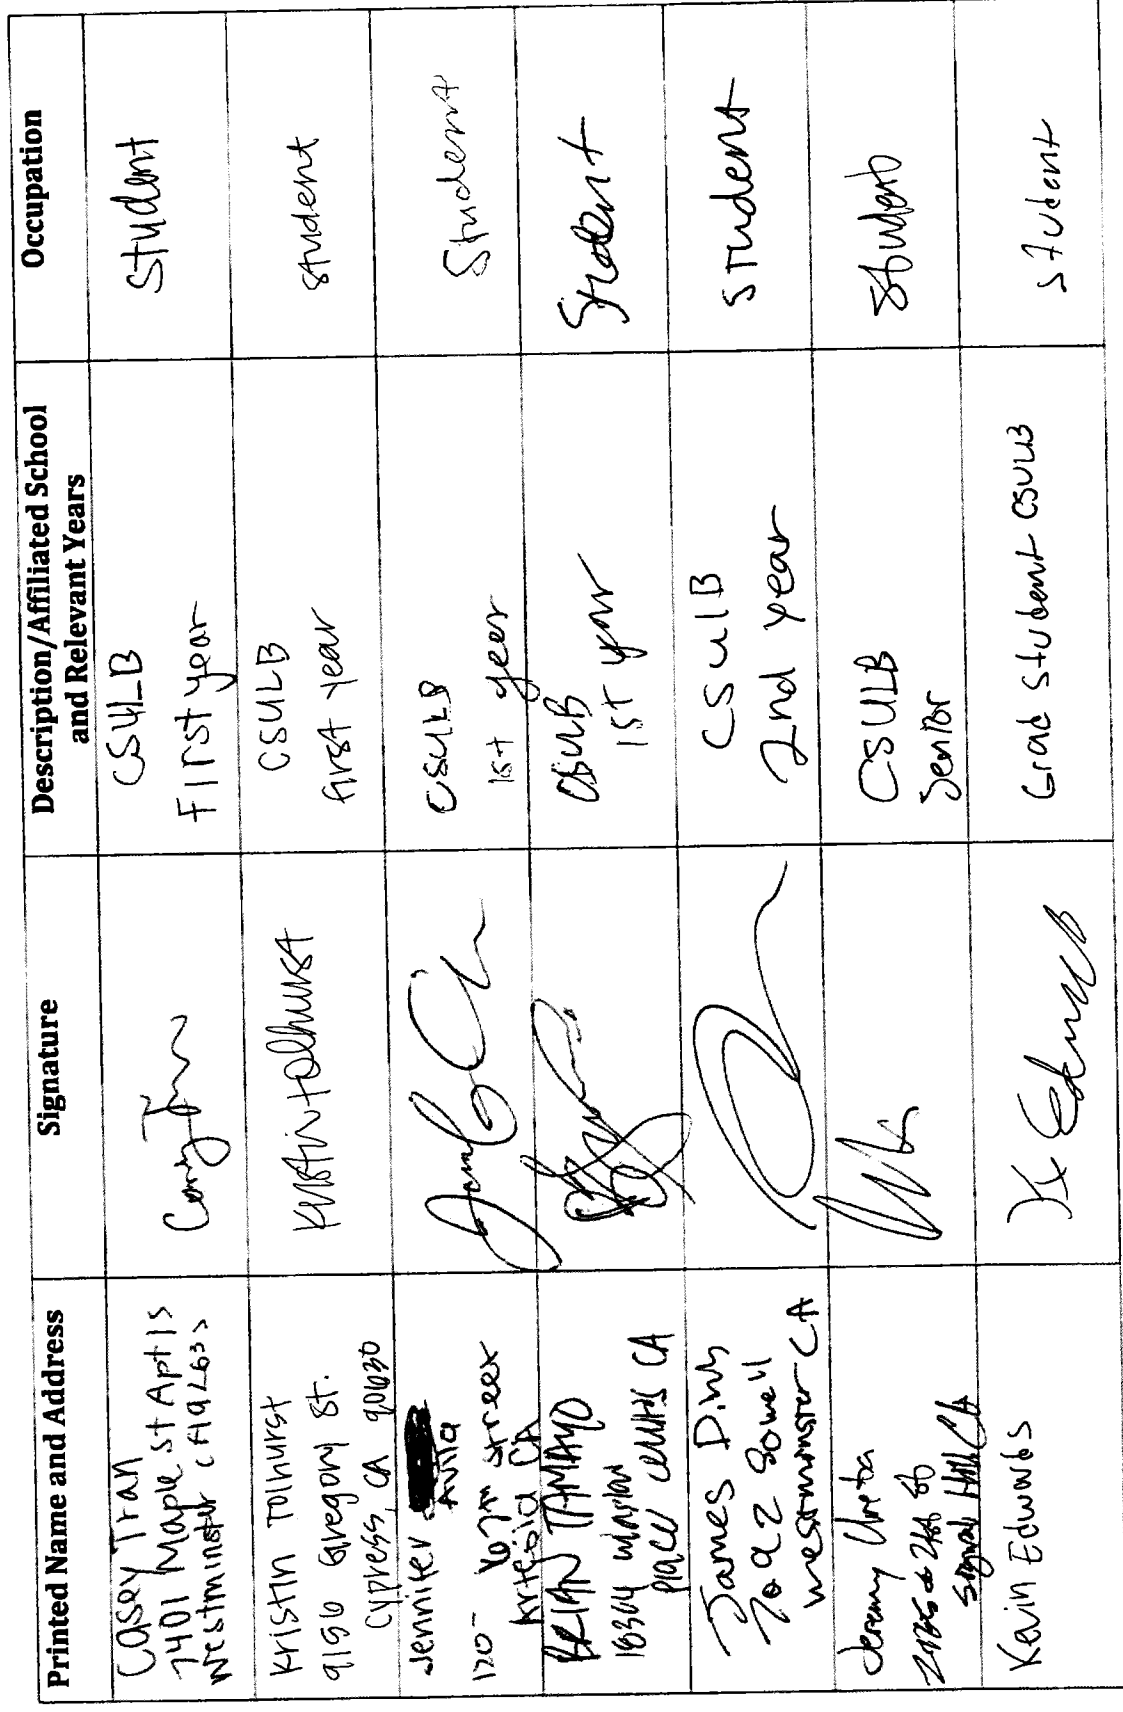 Printed Name and Address
Signature
Description/Affiliated School
and Relevant Years
Occupation
Casey Tran
7401 Maple St Apt 15
Westminster CA
Casey Tran
CSULB
First year
Student
Kristin Tolhurst
9156 Gregory St.
Cypress, CA 90630
Kristin Tolhurst
CSULB
first year
student
Jennifer
Avila
167th street
Artesia CA
CSULB
1st year
Student
BRIAN TAMAYO
place cerritos CA
CSULB
1st year
Student
James Ding
westminster CA
CSULB
2nd year
Student
Jeremy Ureta
Signal Hill CA
CSULB
Senior
Student
Kevin Edwards
K Edwards
Grad Student CSULB
Student